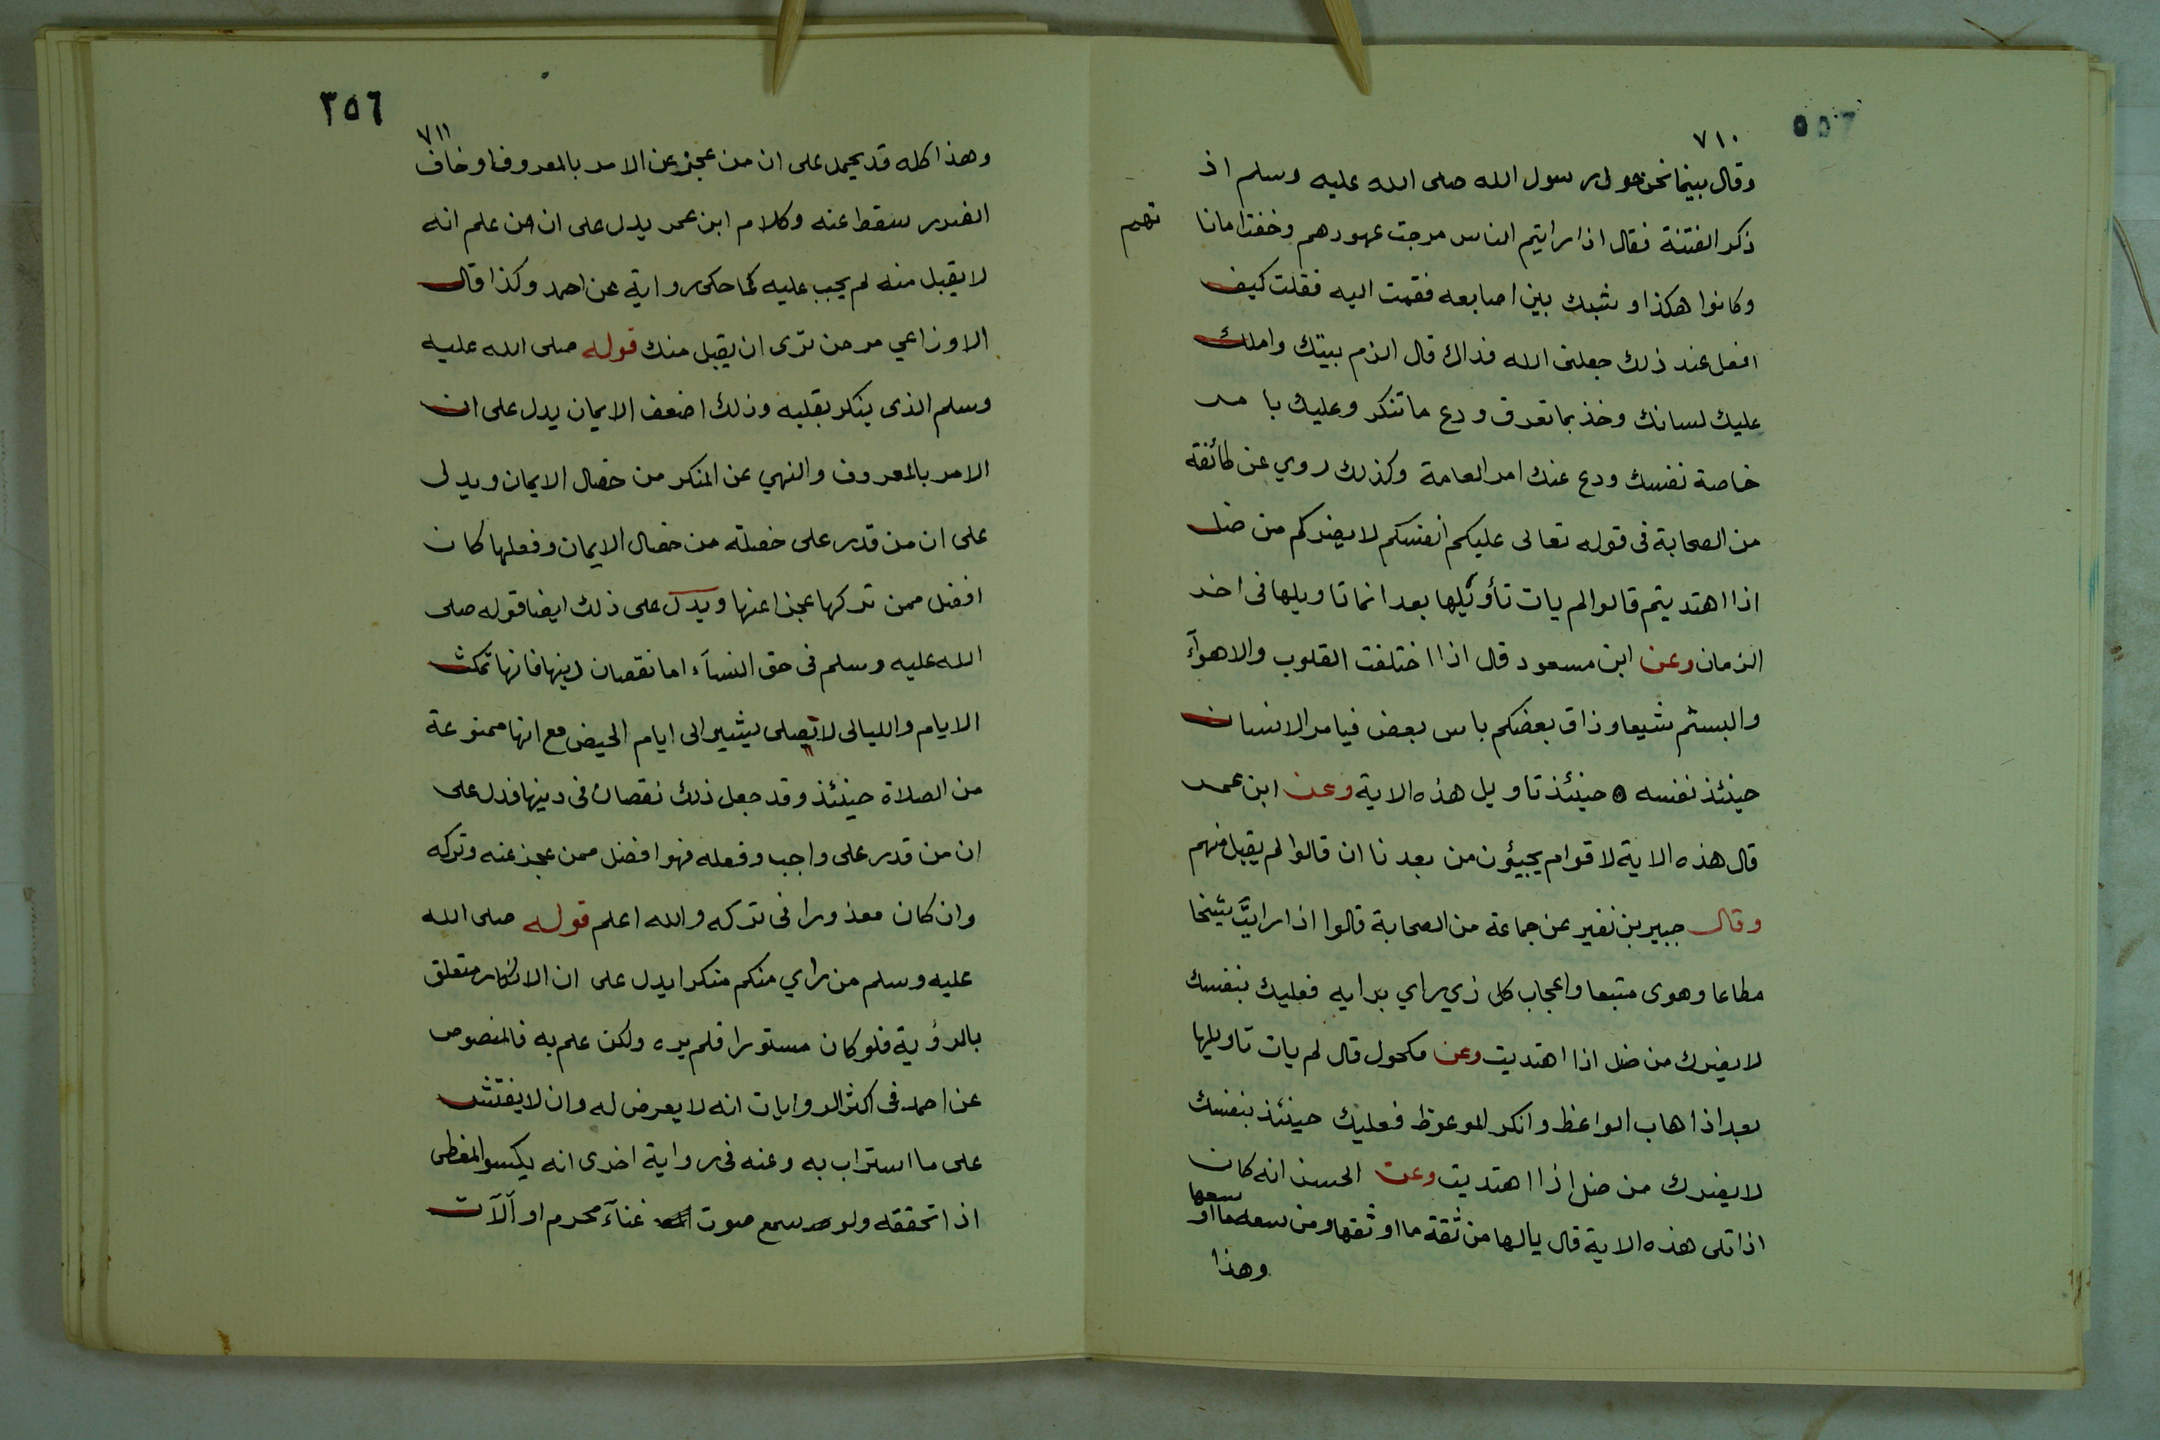 ٧١٠
وقال بينما نحن حول رسول الله صلى الله عليه وسلم اذ
ذكر الفتنة فقال اذا رايتم الناس مرجت عهودهم وخفت اماناتهم
وكانوا هكذا وشبك بين اصابعه فقمت اليه فقلت كيف
افعل عند ذلك جعلنى الله فداك قال الزم بيتك واملك
عليك لسانك وخذ بما تعرف ودع ما تنكر وعليك بامر
خاصة نفسك ودع عنك امر العامة وكذلك روي عن طائفة
من الصحابة فى قوله تعالى عليكم انفسكم لا يضركم من ضل
اذا اهتديتم قالوا لم يات تأويلها بعد انما تاويلها فى اخر
الزمان وعن ابن مسعود قال اذا اختلفت القلوب والاهوآء
والبستم شيعا وذاق بعضكم باس بعض فيامر الانسان
حينئذ نفسه ه حينئذ تاويل هذه الاية وعن ابن عمر
قال هذه الاية لاقوام يجيؤن من بعدنا ان قالوا لم يقبل منهم
وقال جبير بن نفير عن جماعة من الصحابة قالوا اذا رايت شيخا
مطاعا وهوى متبعا واعجاب كل ذي راي برايه فعليك بنفسك
لا يضرك من ضل اذا اهتديت وعن مكحول قال لم يات تاويلها
بعد اذا هاب الواعظ وانكر الموعوظ فعليك حينئذ بنفسك
لا يضرك من ضل اذا اهتديت وعن الحسن انه كان
اذا تلى هذه الاية قال يالها من ثقة ما اوثقها ومن سعة ما اوسعها
وهذا
٣٥٦
٧١١
وهذا كله قد يحمل على ان من عجز عن الامر بالمعروف او خاف
الضرر سقط عنه وكلام ابن عمر يدل على ان من علم انه
لا يقبل منه لم يجب عليه كما حكى رواية عن احمد وكذا قال
الاوزاعي مر من ترى ان يقبل منك قوله صلى الله عليه
وسلم الذى ينكر بقلبه وذلك اضعف الايمان يدل على ان
الامر بالمعروف والنهي عن المنكر من خصال الايمان ويدل
على ان من قدر على خصلة من خصال الايمان وفعلها كان
افضل ممن تركها عجزا عنها ويدل على ذلك ايضا قوله صلى
الله عليه وسلم فى حق النسآء اما نقصان دينها فانها تمكث
الايام والليالى لا تصلى يشير الى ايام الحيض مع انها ممنوعة
من الصلاة حينئذ وقد جعل ذلك نقصان فى دينها فدل على
ان من قدر على واجب وفعله فهو افضل ممن عجز عنه وتركه
وان كان معذورا فى تركه والله اعلم قوله صلى الله
عليه وسلم من راي منكم منكرا يدل على ان الانكار متعلق
بالرؤية فلو كان مستورا فلم يره ولكن علم به فالمنصوص
عن احمد فى اكثر الروايات انه لا يعرض له وان لا يفتش
على ما استراب به وعنه فى رواية اخرى انه يكسوا المغطى
اذا تحققه ولو سمع صوت غنآء محرم او آلآت